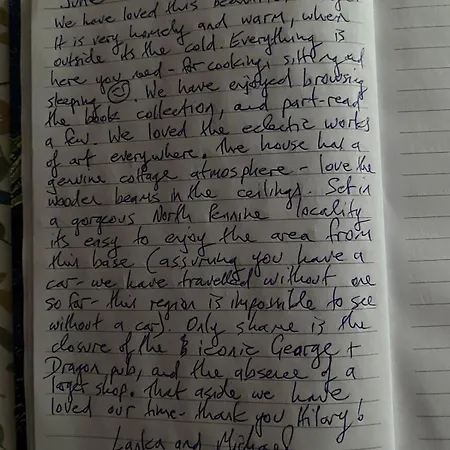 June
We have loved this
It is very homely and warm, when
outside its the cold. Everything is
here you need - for cooking, sitting and
sleeping ☺. We have enjoyed browsing
the book collection, and part-read
a few. We loved the eclectic works
of art everywhere. The house has a
genuine cottage atmosphere - love the
wooden beams in the ceilings. Set in
a gorgeous North Pennine locality
its easy to enjoy the area from
this base (assuming you have a
car - we have travelled without one
so far - this region is impossible to see
without a car). Only shame is the
closure of the iconic George +
Dragon pub, and the absence of a
larger shop. That aside we have
loved our time - thank you Hilary!
and Michael